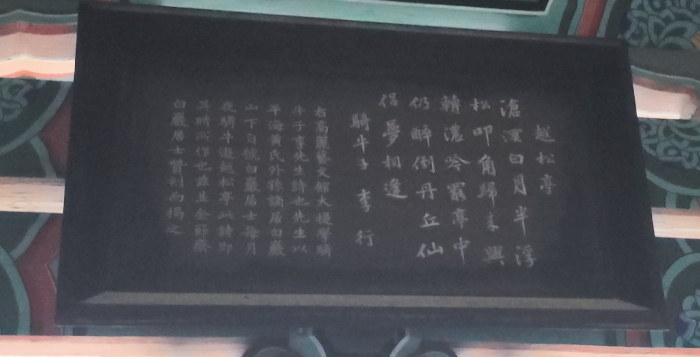 越松亭
滄溟白月半浮
松叩角歸來興
轉濃吟罷亭中
仍醉倒丹丘仙
侶夢相逢
騎牛子 李 行
右高麗藝文館大提學騎
牛子李先生詩也先生以
平海黃氏外孫謫居白巖
山下自號白巖居士每月
夜騎牛遊越松亭此詩卽
其時所作也
白巖居士贊刻而揭之